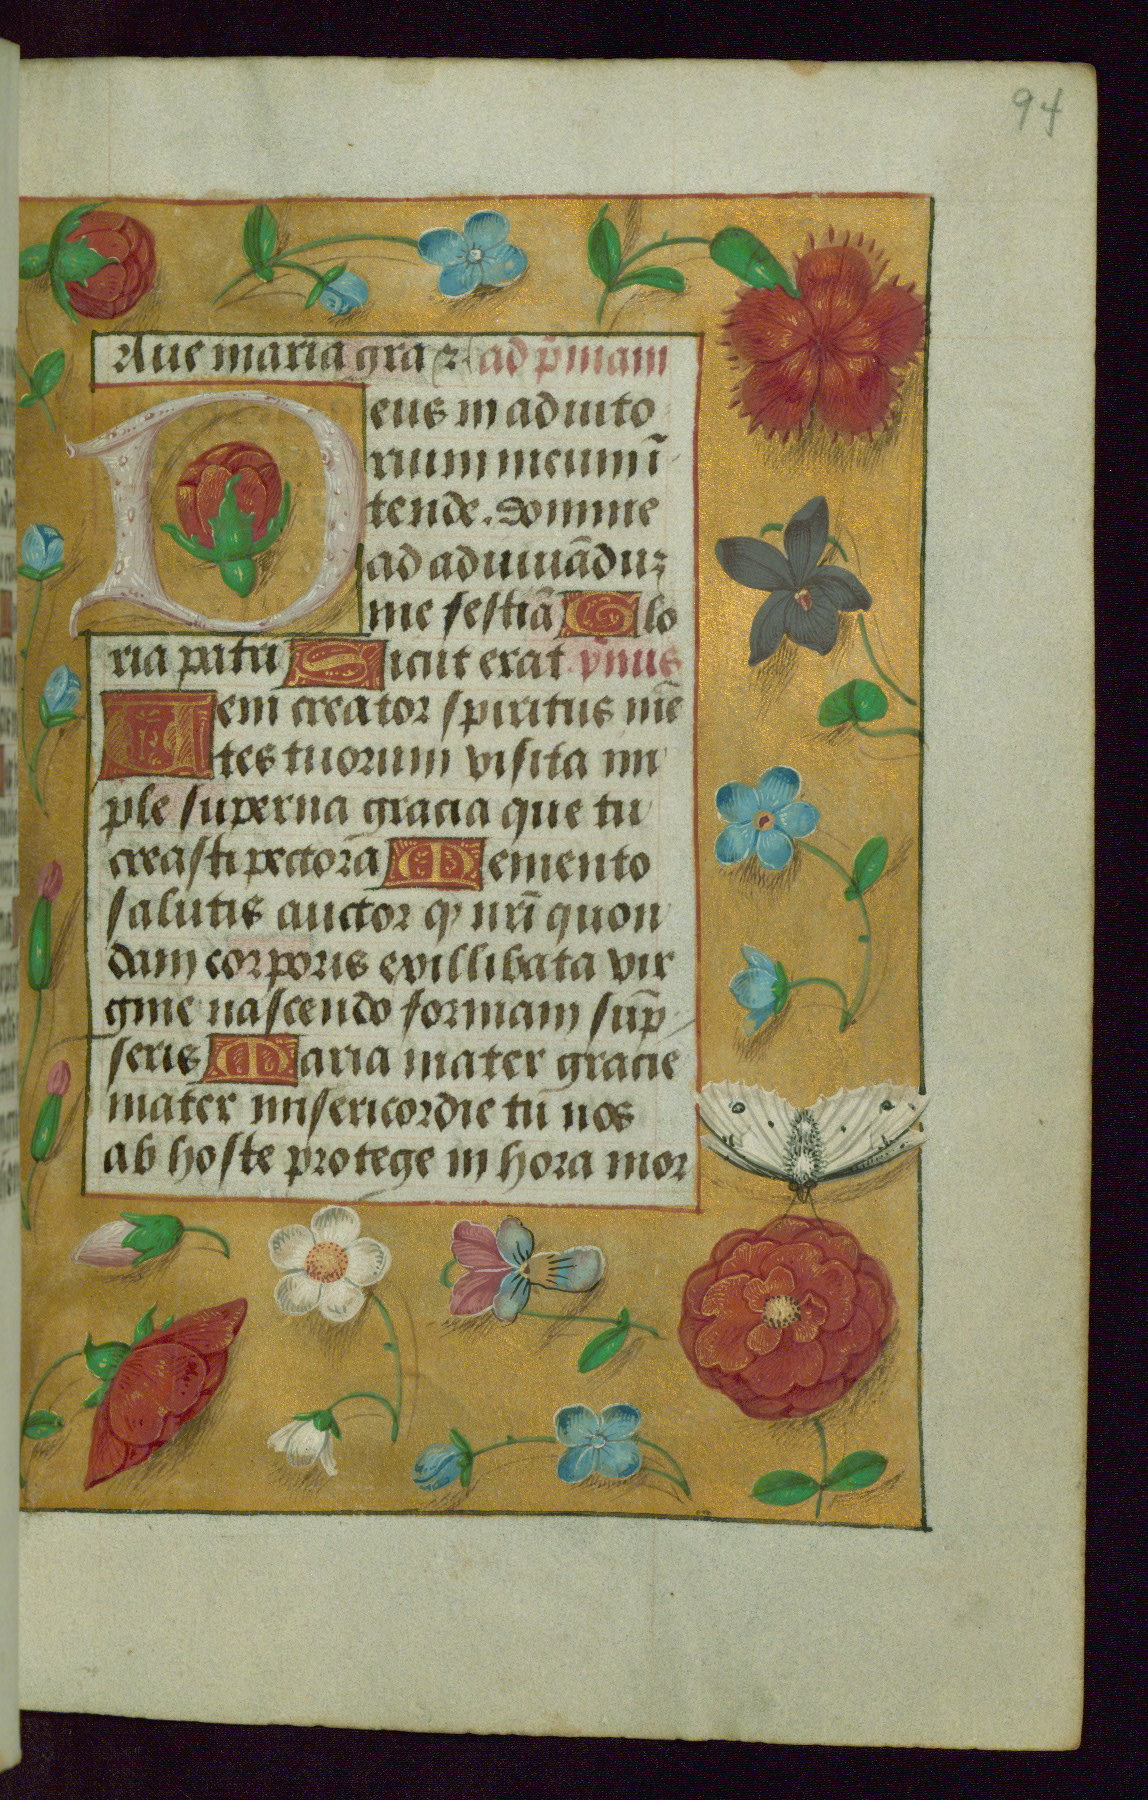 94
Aue maria gra ꝛ ad p̄mam
Deus in adiuto
rium meum ī
tende. Domine
ad adiuuāduꝫ
me festiā Glo
ria patri Sicut erat ỹmus
Ueni creator spiritus mē
tes tuorum visita im
ple superna gracia que tu
creasti pectorā Memento
salutis auctor qꝫ nr̄i quon
dam corporis exillibata vir
gine nascendo formam sūp
seris Maria mater gracie
mater misericordie tū nos
ab hoste protege in hora mor